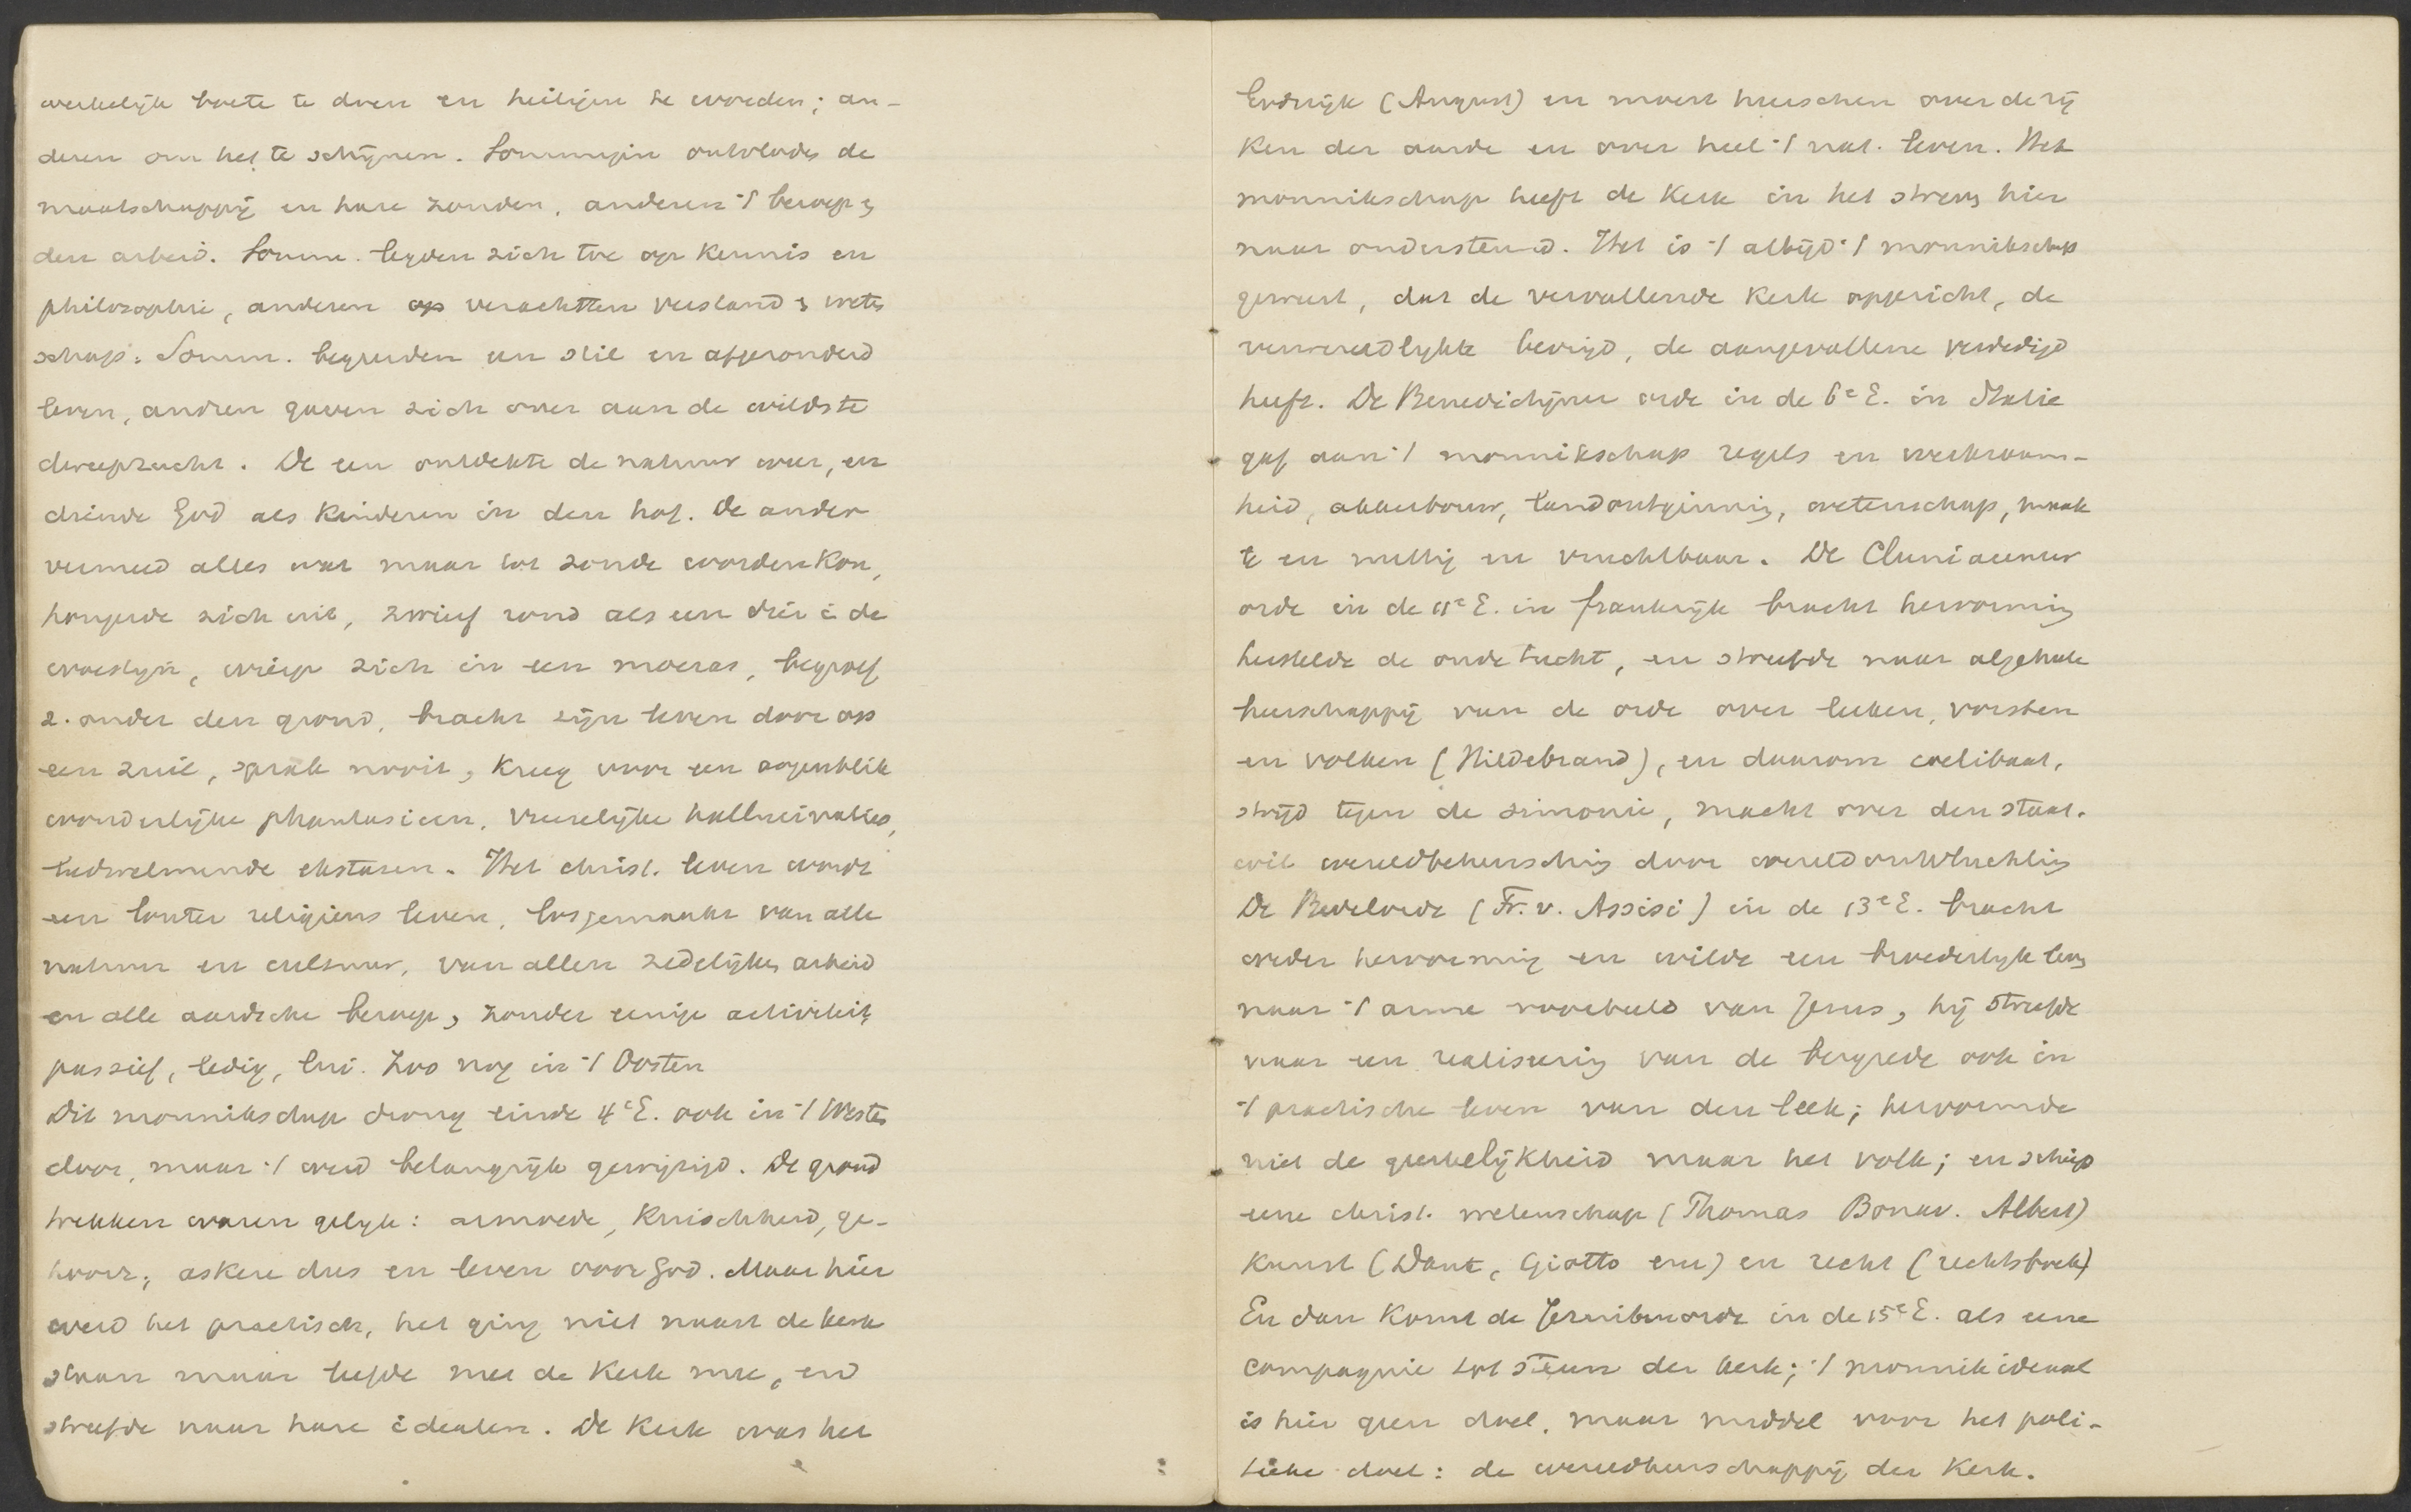 werkelijk boete te doen en heiligen te worden; an-
deren om het te schijnen. Sommigen ontvloden de
maatschappij en hare zonden, anderen 't beroep en
den arbeid. Somm. legden zich toe op kennis en
philosophie, anderen verachtten verstand en weten
schap. Somm. begeerden een stil en afgezonderd
leven, andren gaven zich over aan de wildste
dweepzucht. De een ontdekte de natuur weer, en
diende God als kinderen in den hof. De ander
vermeed alles wat maar tot zonde worden kon,
hongerde zich uit, zwierf rond als een dier i de
woestijn, wierp zich in een moeras, begroef
z. onder den grond, bracht zijn leven door op
een zuil, sprak nooit, kreeg voor een oogenblik
wonderlijke phantasieen, vreeselijke hallucinaties,
bedwelmende ekstasen. Het christ. leven wordt
een louter religieus leven, losgemaakt van alle
natuur en cultuur, van allen zedelijken arbeid
en alle aardsche beroep, zonder eenige activiteit,
passief, ledig, lui. Zoo nog in 't Oosten
Dit monnikschap drong einde 4e E. ook in 't Westen
door, maar 't werd belangrijk gewijzigd. De grond
trekken waren gelijk: armoede, kuischheid, ge-
hoorz., askese dus en leven voor God. Maar hier
werd het practisch, het ging niet naast de kerk
staan maar leefde met de kerk mee, en
streefde naar hare idealen. De kerk was het
Godsrijk (August) en moest heerschen over de rij
ken der aarde en over heel 't nat. leven. Het
monnikschap heeft de kerk in het streven hier
naar ondersteund. Het is 't altijd 't monnikschap
geweest, dat de vervallende kerk opgericht, de
verwereldlijkte bevrijd, de aangevallene verdedigd
heeft. De Benedictijner orde in de 6e E. in Italie
gaf aan 't monnikschap regels en werkzaam-
heid, akkerbouw, landontginning, wetenschap, maak
te en nuttig en vruchtbaar. De Cluniacenser
orde in de 11e E. in Frankrijk bracht hervorming
herstelde de oude tucht, en streefde naar algeheele
heerschappij van de orde over leeken, vorsten
en volken (Hildebrand), en daarom coelibaat,
strijd tegen de simonie, macht over den staat.
wil wereldbeheersching door wereldontvluchting
De Bedelorde (Fr. v. Assisi) in de 13e E. bracht
weder hervorming en wilde een broederlijk leven
naar 't arme voorbeeld van Jezus, hij streefde
naar een realiseering van de bergrede ook in
't practische leven van den leek; hervormde
niet de geestelijkheid maar het volk; en schiep
eene christ. wetenschap (Thomas Bonav. Albert)
Kunst (Dante, Giotto enz) en recht (rechtsboek)
En dan komt de Jezuitenorde in de 15e E. als eene
compagnie tot steun der kerk; 't monnikideaal
is hier geen doel, maar middel voor het poli-
tieke doel: de wereldheerschappij der Kerk.